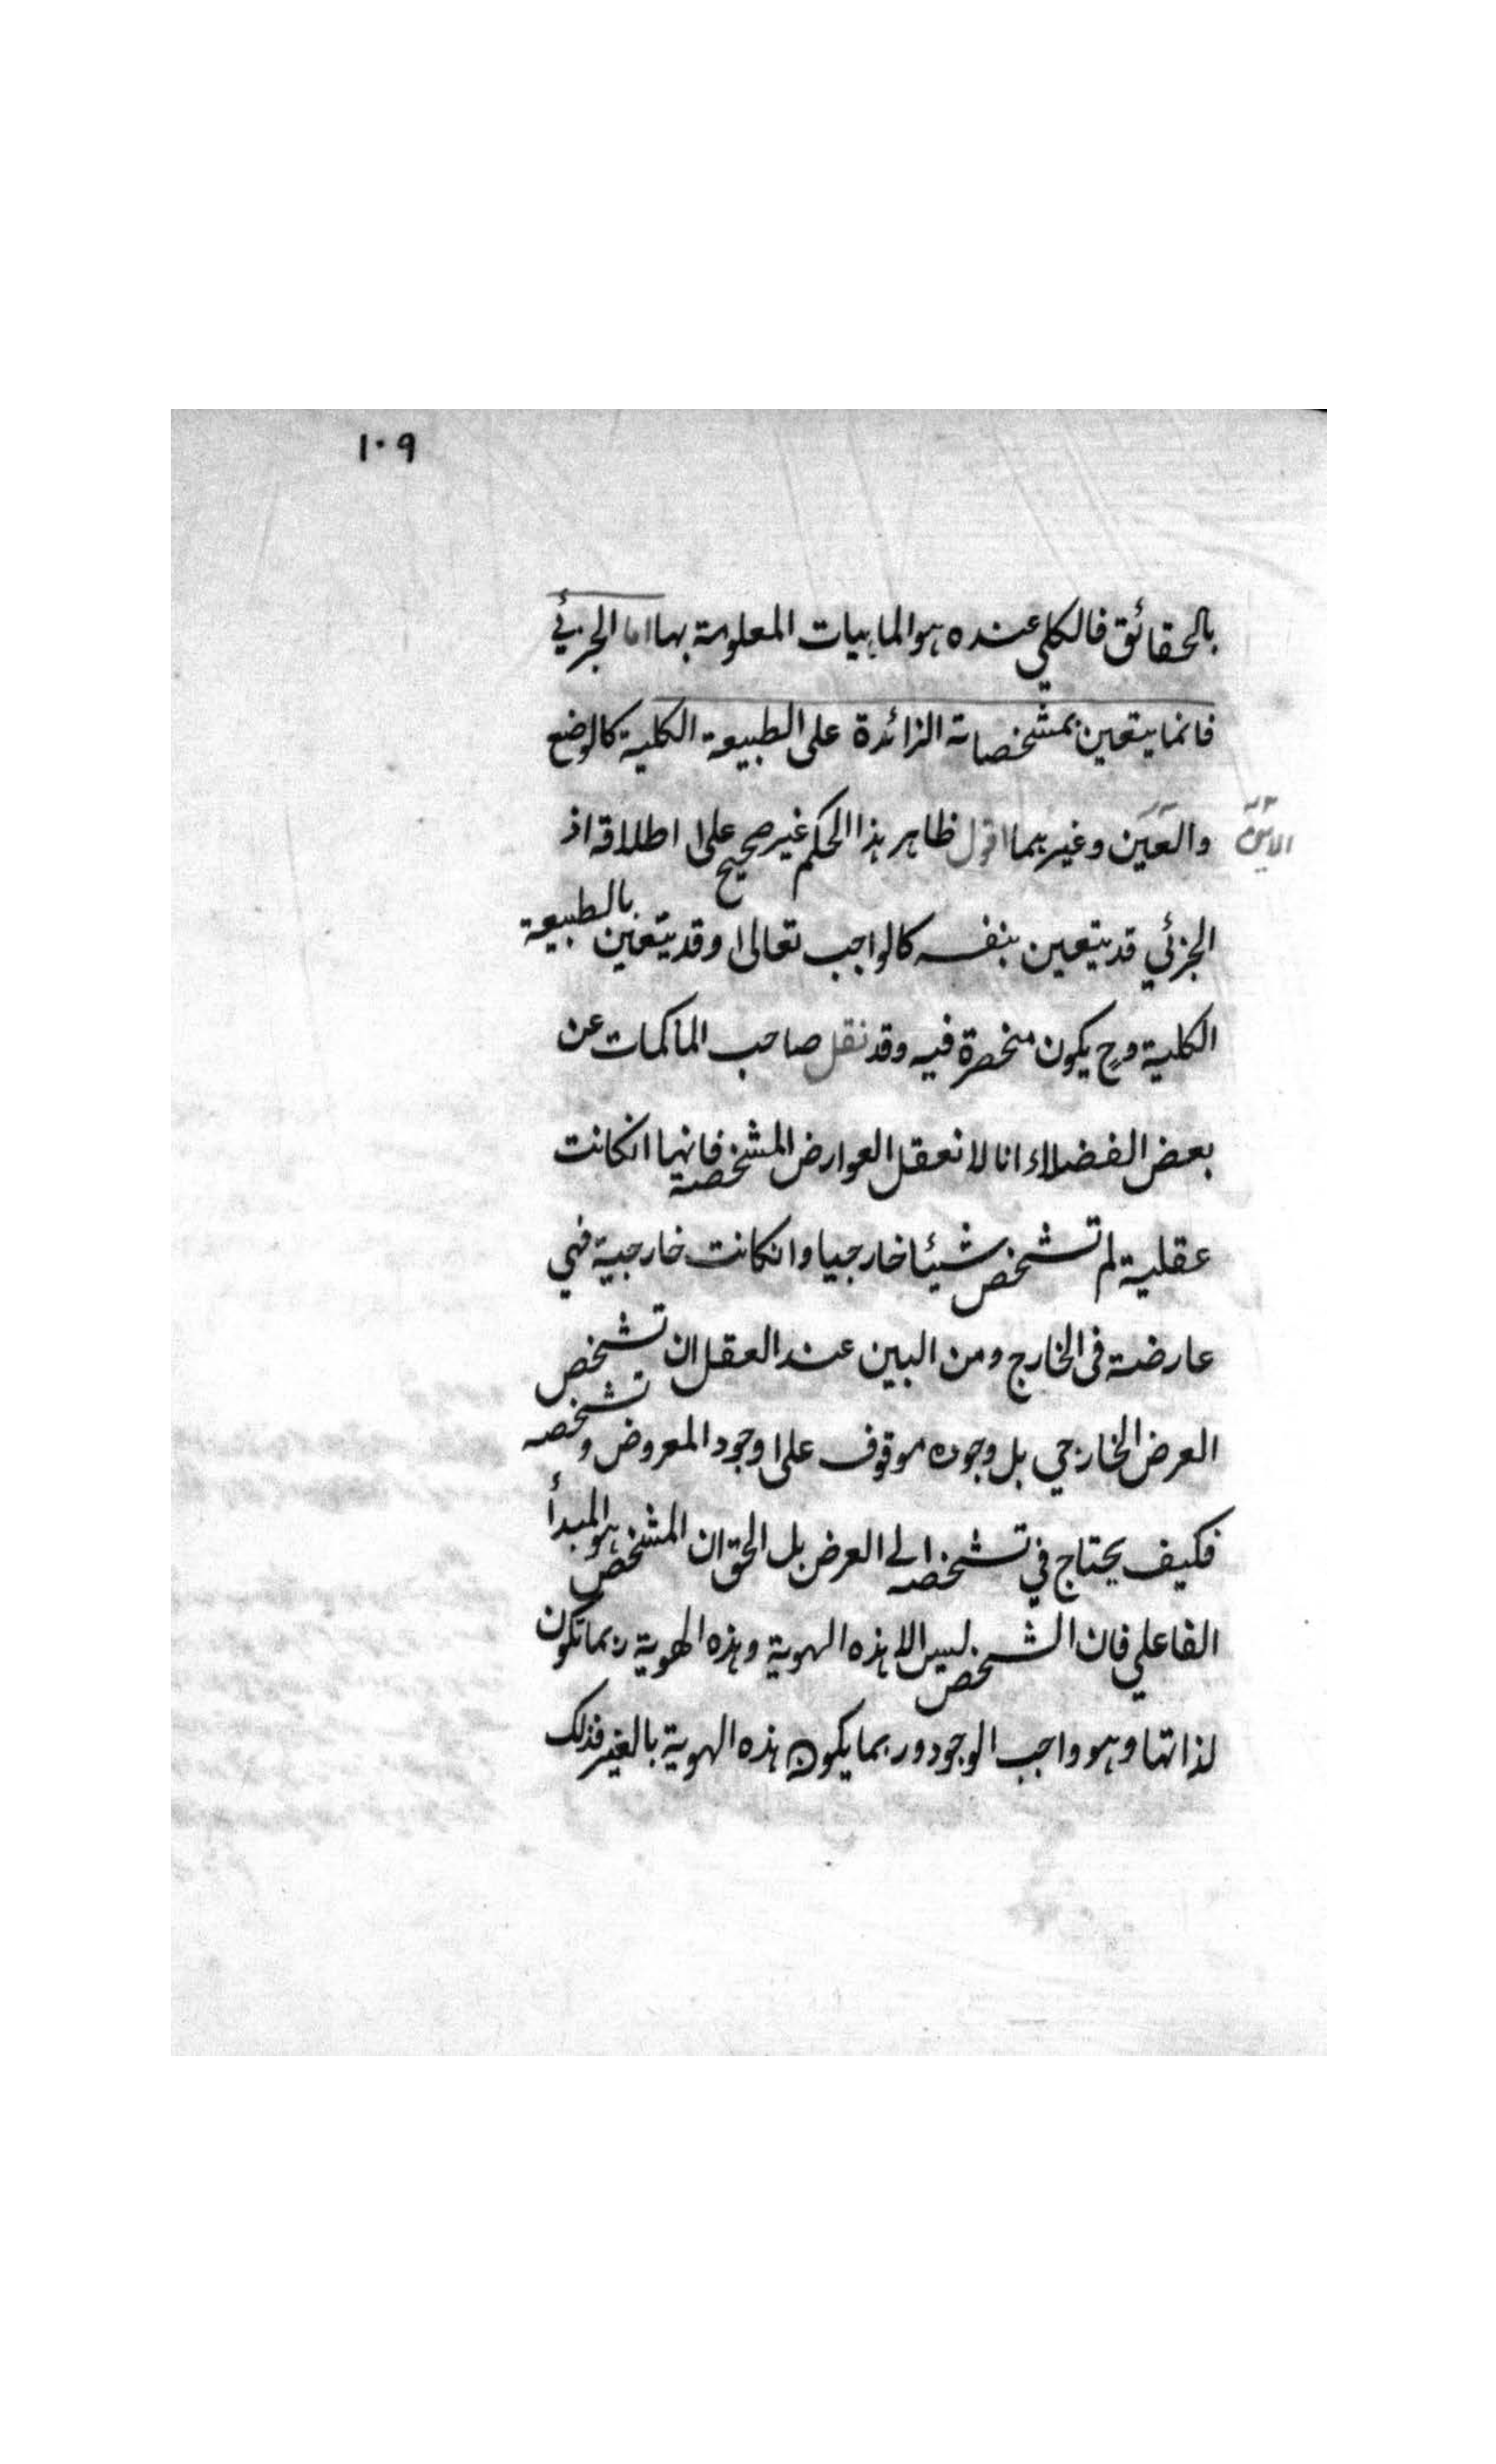 ١٠٩
بالحقائق فالكلي عنده هو الماهيات المعلومة بها اما الجزئي
فانما يتعين بمشخصاته الزائدة على الطبيعة الكلية كالوضع
والعين وغيرهما اقول ظاهر هذا الحكم غير صحيح على اطلاقه اذ
الاين
الجزئي قد يتعين بنفسه كالواجب تعالى وقد يتعين بالطبيعة
الكلية وح يكون منحصرة فيه وقد نقل صاحب المحاكمات عن
بعض الفضلاء انا لا نعقل العوارض المشخصة فانها انكانت
عقلية لم تشخص شيئا خارجيا وانكانت خارجية فهي
عارضة فى الخارج ومن البين عند العقل ان تشخص
العرض الخارجي بل وجوده موقوف على وجود المعروض وتشخصه
فكيف يحتاج في تشخصه الى العرض بل الحق ان المشخص هو المبدأ
الفاعلي فان الشخص ليس الا هذه الهوية وهذه الهوية ربما تكون
لذاتها وهو واجب الوجود وربما يكون هذه الهوية بالغير فذلك